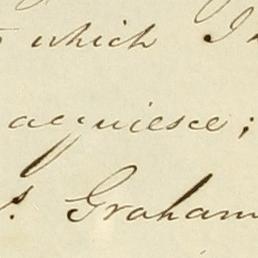 which I
acquiesce;
s. Graham